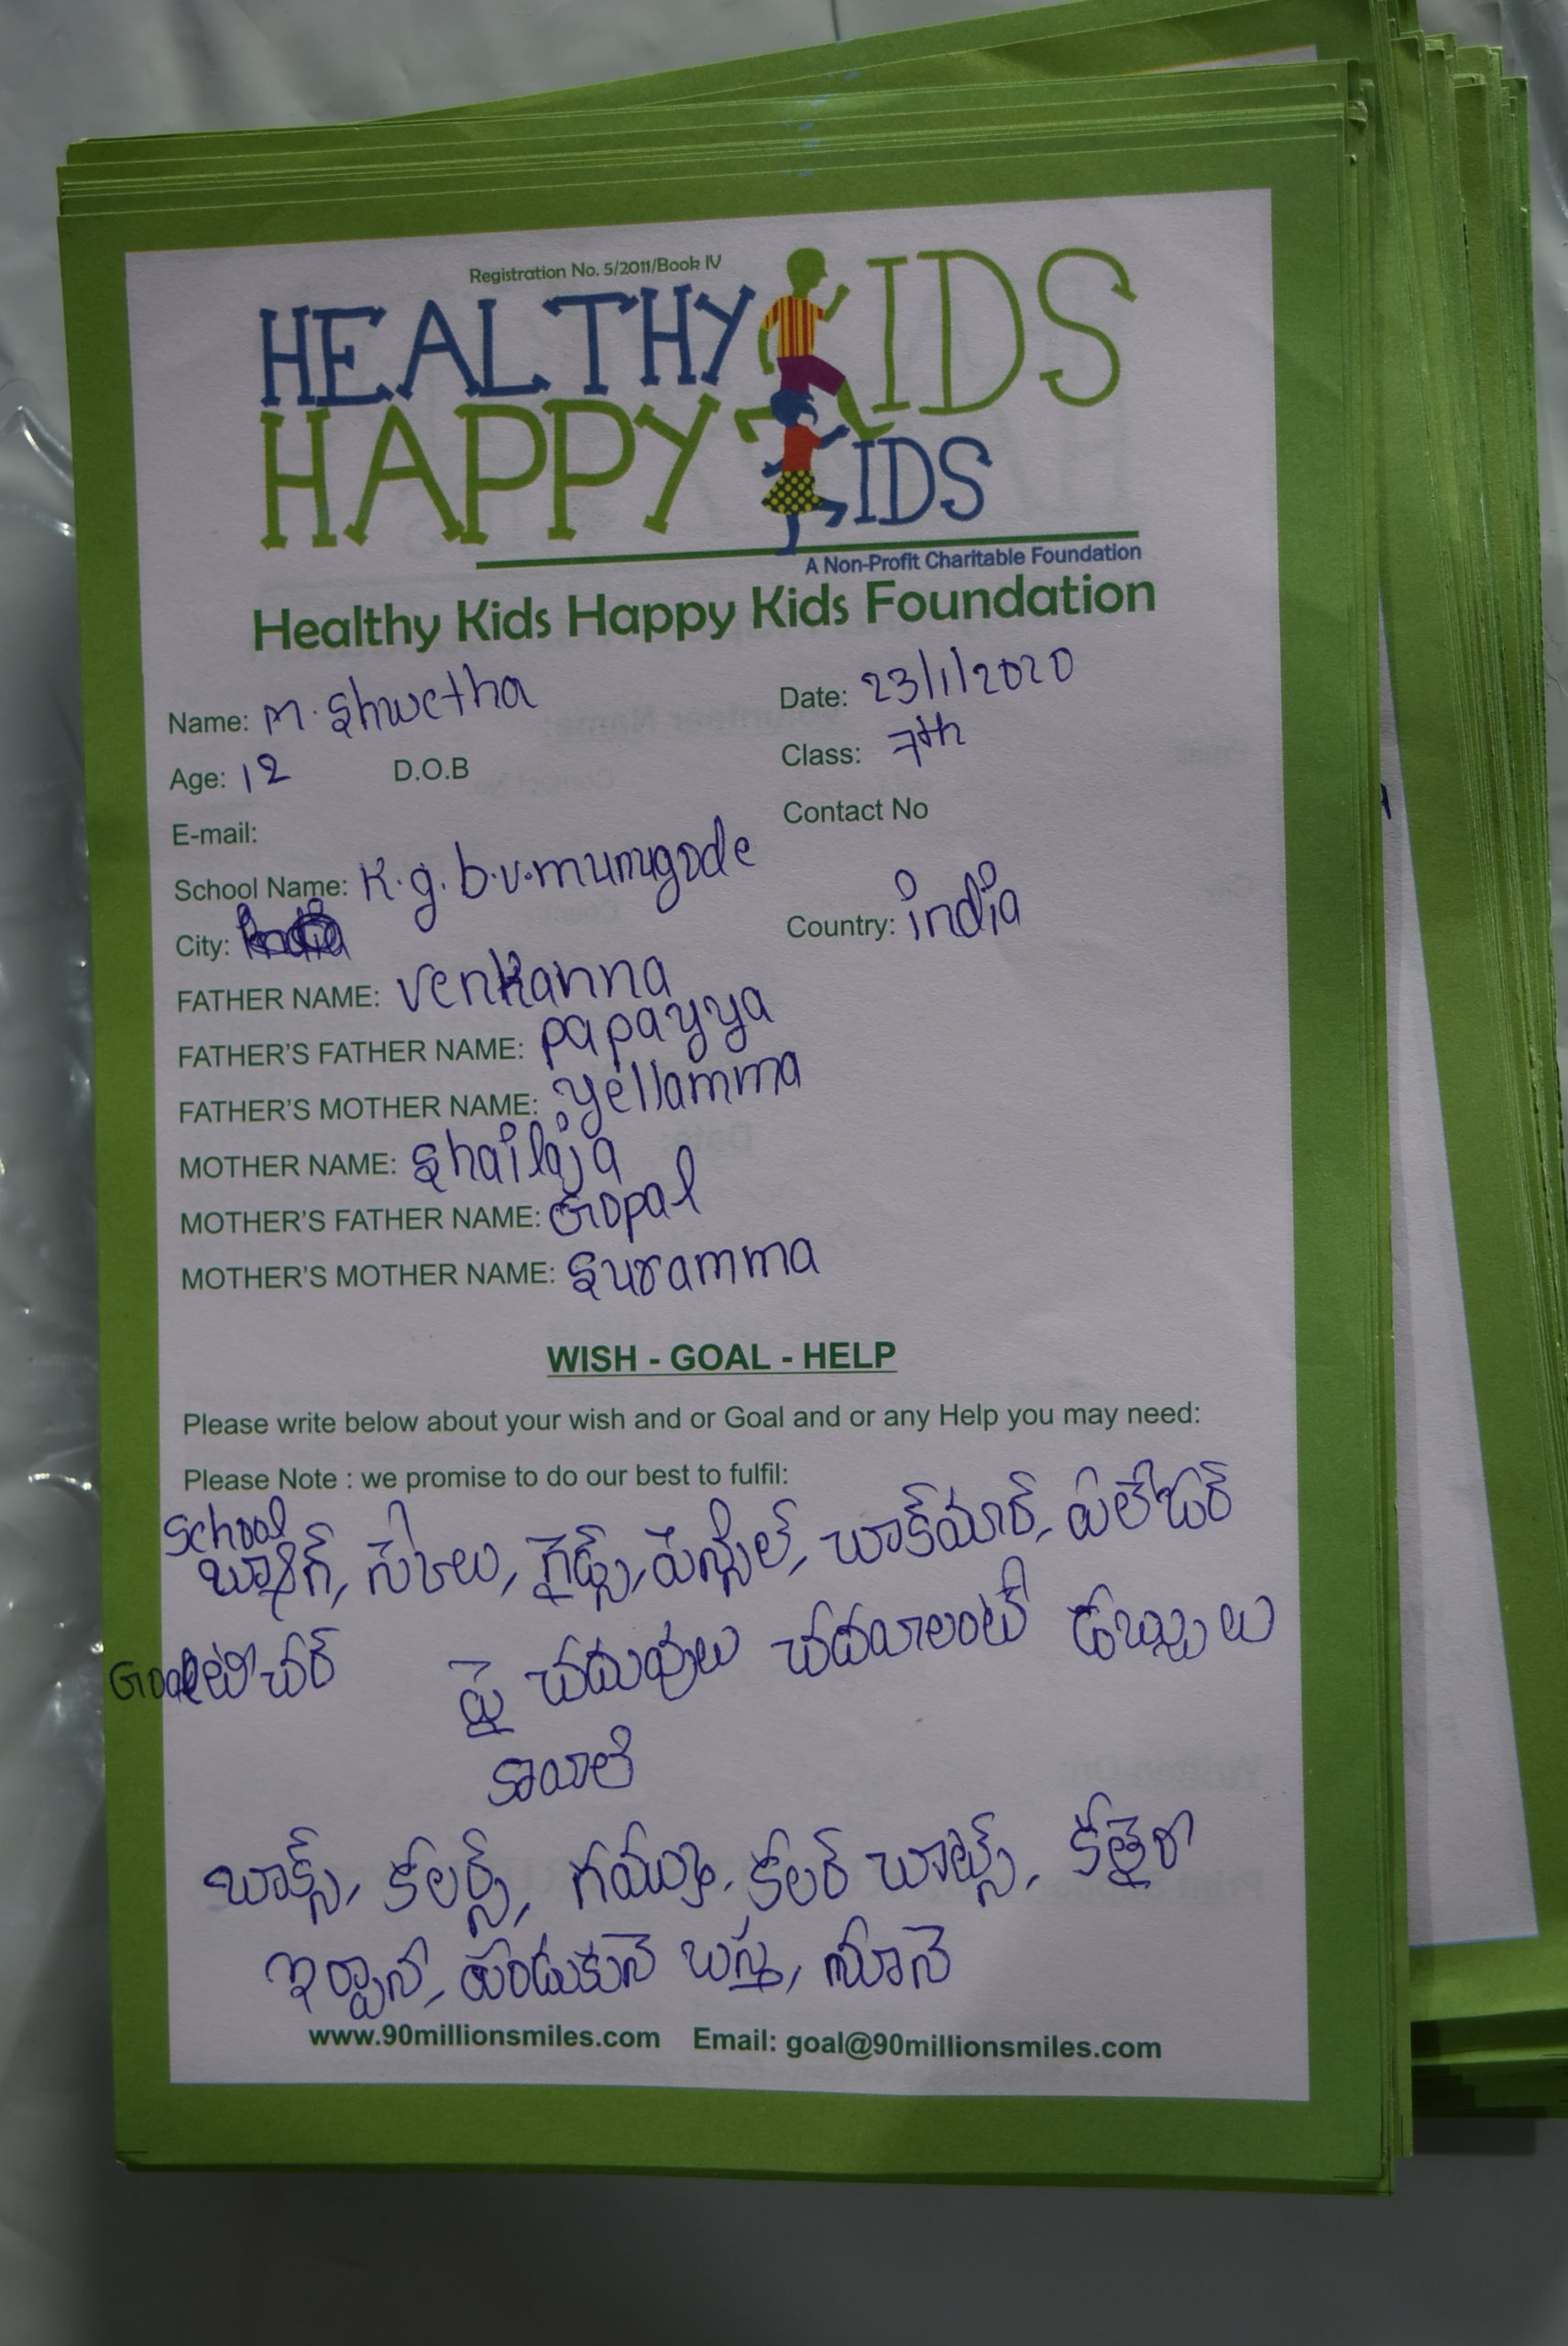 Registration No. 5/2011/Book IV
HEALTHY KIDS
HAPPY KIDS
A Non-Profit Charitable Foundation
Healthy Kids Happy Kids Foundation
Name: M. Shwetha Date: 23/1/2020
Age: 12 D.O.B Class: 7th
E-mail: Contact No
School Name: K.g.b.v.munugode
City: Country: india
FATHER NAME: venkanna
FATHER'S FATHER NAME: papayya
FATHER'S MOTHER NAME: yellamma
MOTHER NAME: Shailaja
MOTHER'S FATHER NAME: Gopal
MOTHER'S MOTHER NAME: Suramma
WISH - GOAL - HELP
Please write below about your wish and or Goal and or any Help you may need:
Please Note : we promise to do our best to fulfil:
School
బ్యాగ్, గైడ్స్, పెన్సిల్,
Goal టీచర్ పై చదువులు చదవాలంటే డబ్బులు
కావాలి
బాక్స్, కలర్స్, గమ్ము, కలర్ చాట్స్,
www.90millionsmiles.com Email: goal@90millionsmiles.com